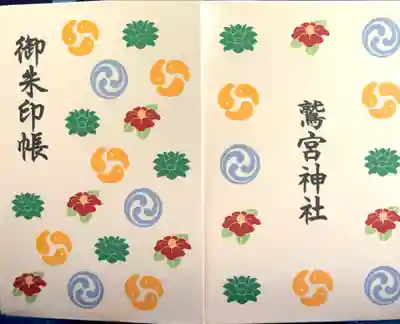 御朱印帳
鷲宮神社